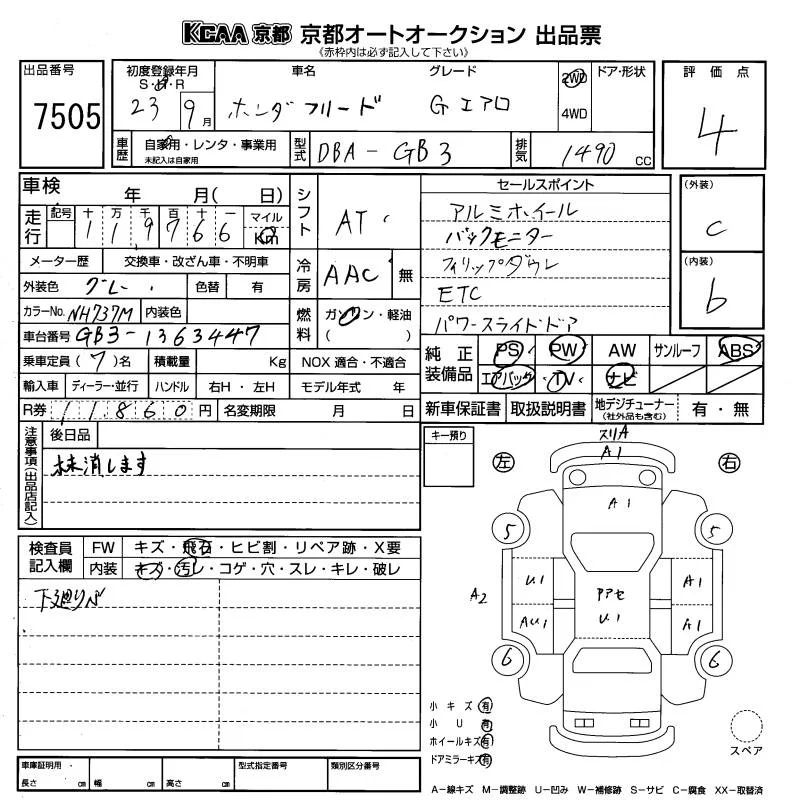 KCAA 京都 京都オートオークション 出品票
《赤枠内は必ず記入して下さい》
出品番号
7505
初度登録年月
S・H・R
23 9 月
車名
ホンダ フリード
グレード
G エアロ
2WD
4WD
ドア・形状
評価点
4
車歴
自家用・レンタ・事業用
未記入は自家用
型式
DBA-GB3
排気
1490 CC
車検
年 月( 日)
走行
記号 十 万 千 百 十 一
1 1 9 7 6 6
マイル
Km
シフト
AT
メーター歴
交換車・改ざん車・不明車
外装色
グレー
色替
有
冷房
AAC
無
カラーNo.
NH737M
内装色
燃料
ガソリン・軽油
( )
車台番号
GB3-1363447
乗車定員 (7)名
積載量
Kg
NOX 適合・不適合
輸入車
ディーラー・並行
ハンドル
右H・左H
モデル年式 年
R券
11860円
名変期限
月 日
セールスポイント
アルミホイール
バックモニター
フィリップダウン
ETC
パワースライドドア
(外装)
C
(内装)
b
純正装備品
PS PW AW サンルーフ ABS
エアバック TV ナビ
新車保証書
取扱説明書
地デジチューナー
(社外品も含む)
有・無
注意事項(出品店記入)
後日品
抹消します
キー預り
検査員記入欄
FW
キズ・飛石・ヒビ割・リペア跡・X要
内装
キズ・汚レ・コゲ・穴・スレ・キレ・破レ
下廻りペ
左
右
スリA
A1
A1
5
5
A2
U1
AU1
アアセ
U1
A1
A1
6
6
小キズ 有
小U 有
ホイールキズ 有
ドアミラーキズ 有
スペア
車庫証明用・
長さ cm
幅 cm
高さ cm
型式指定番号
類別区分番号
A−線キズ M−調整跡 U−凹み W−補修跡 S−サビ C−腐食 XX−取替済